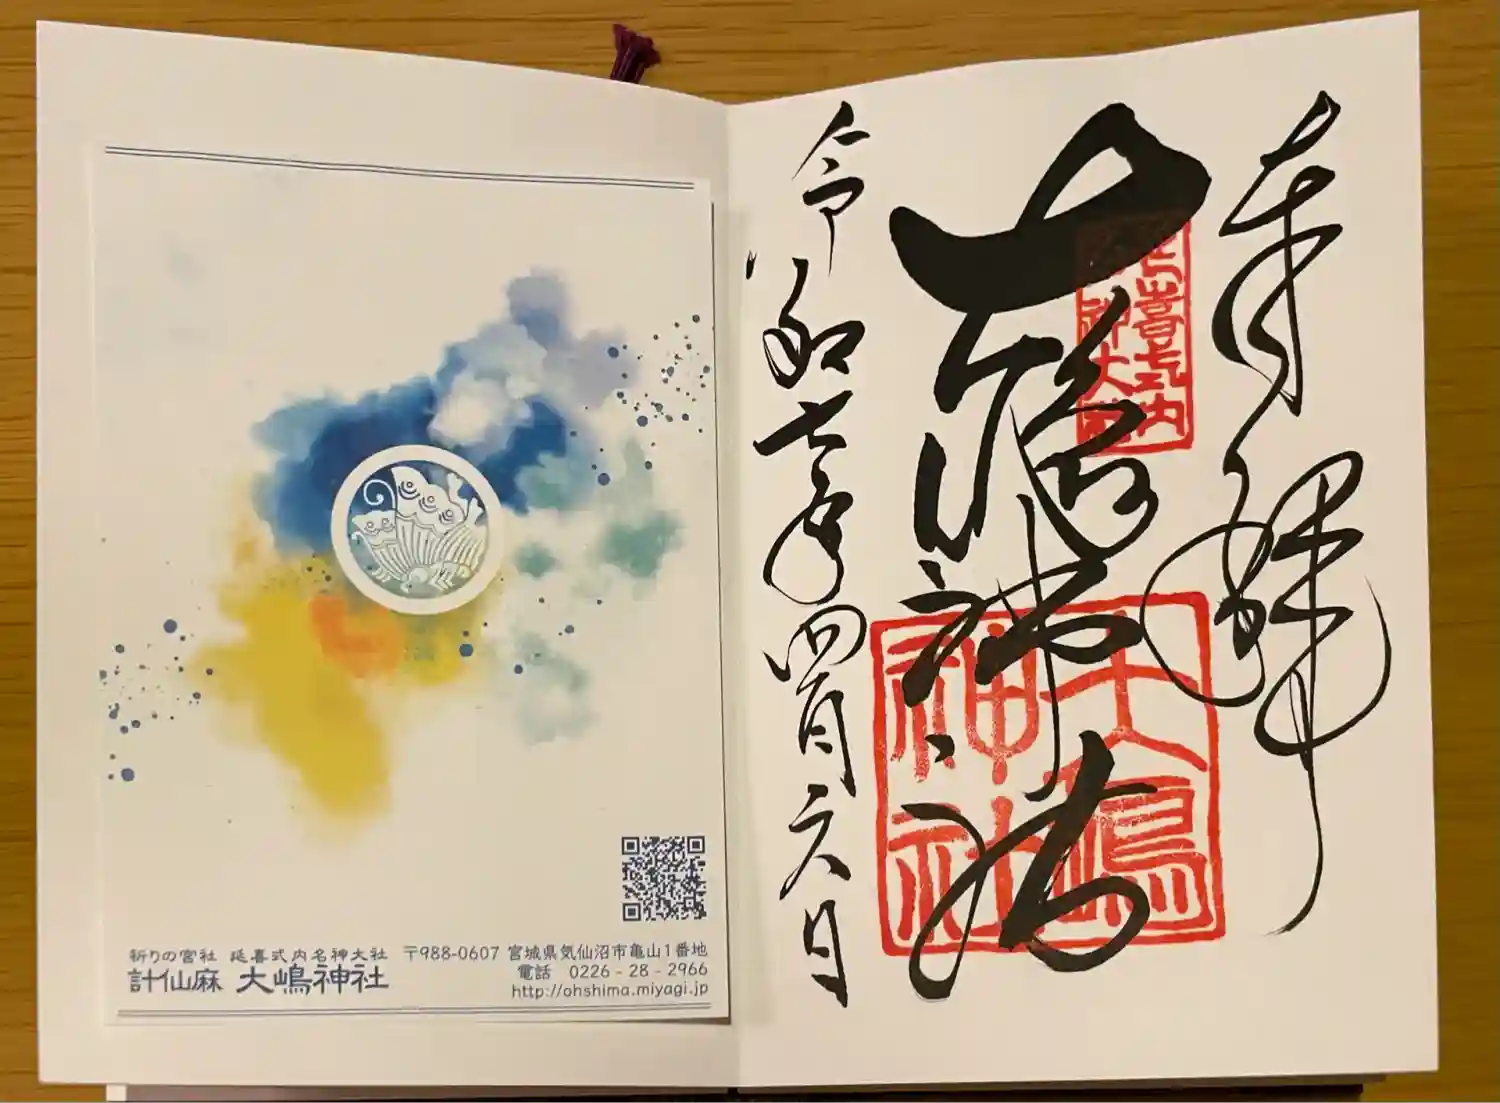 奉拝
大嶋神社
延喜式内
名神大社
大嶋
神社
令和七年四月六日
祈りの宮社 延喜式内名神大社
計仙麻 大嶋神社
〒988-0607 宮城県気仙沼市亀山1番地
電話 0226-28-2966
http://ohshima.miyagi.jp